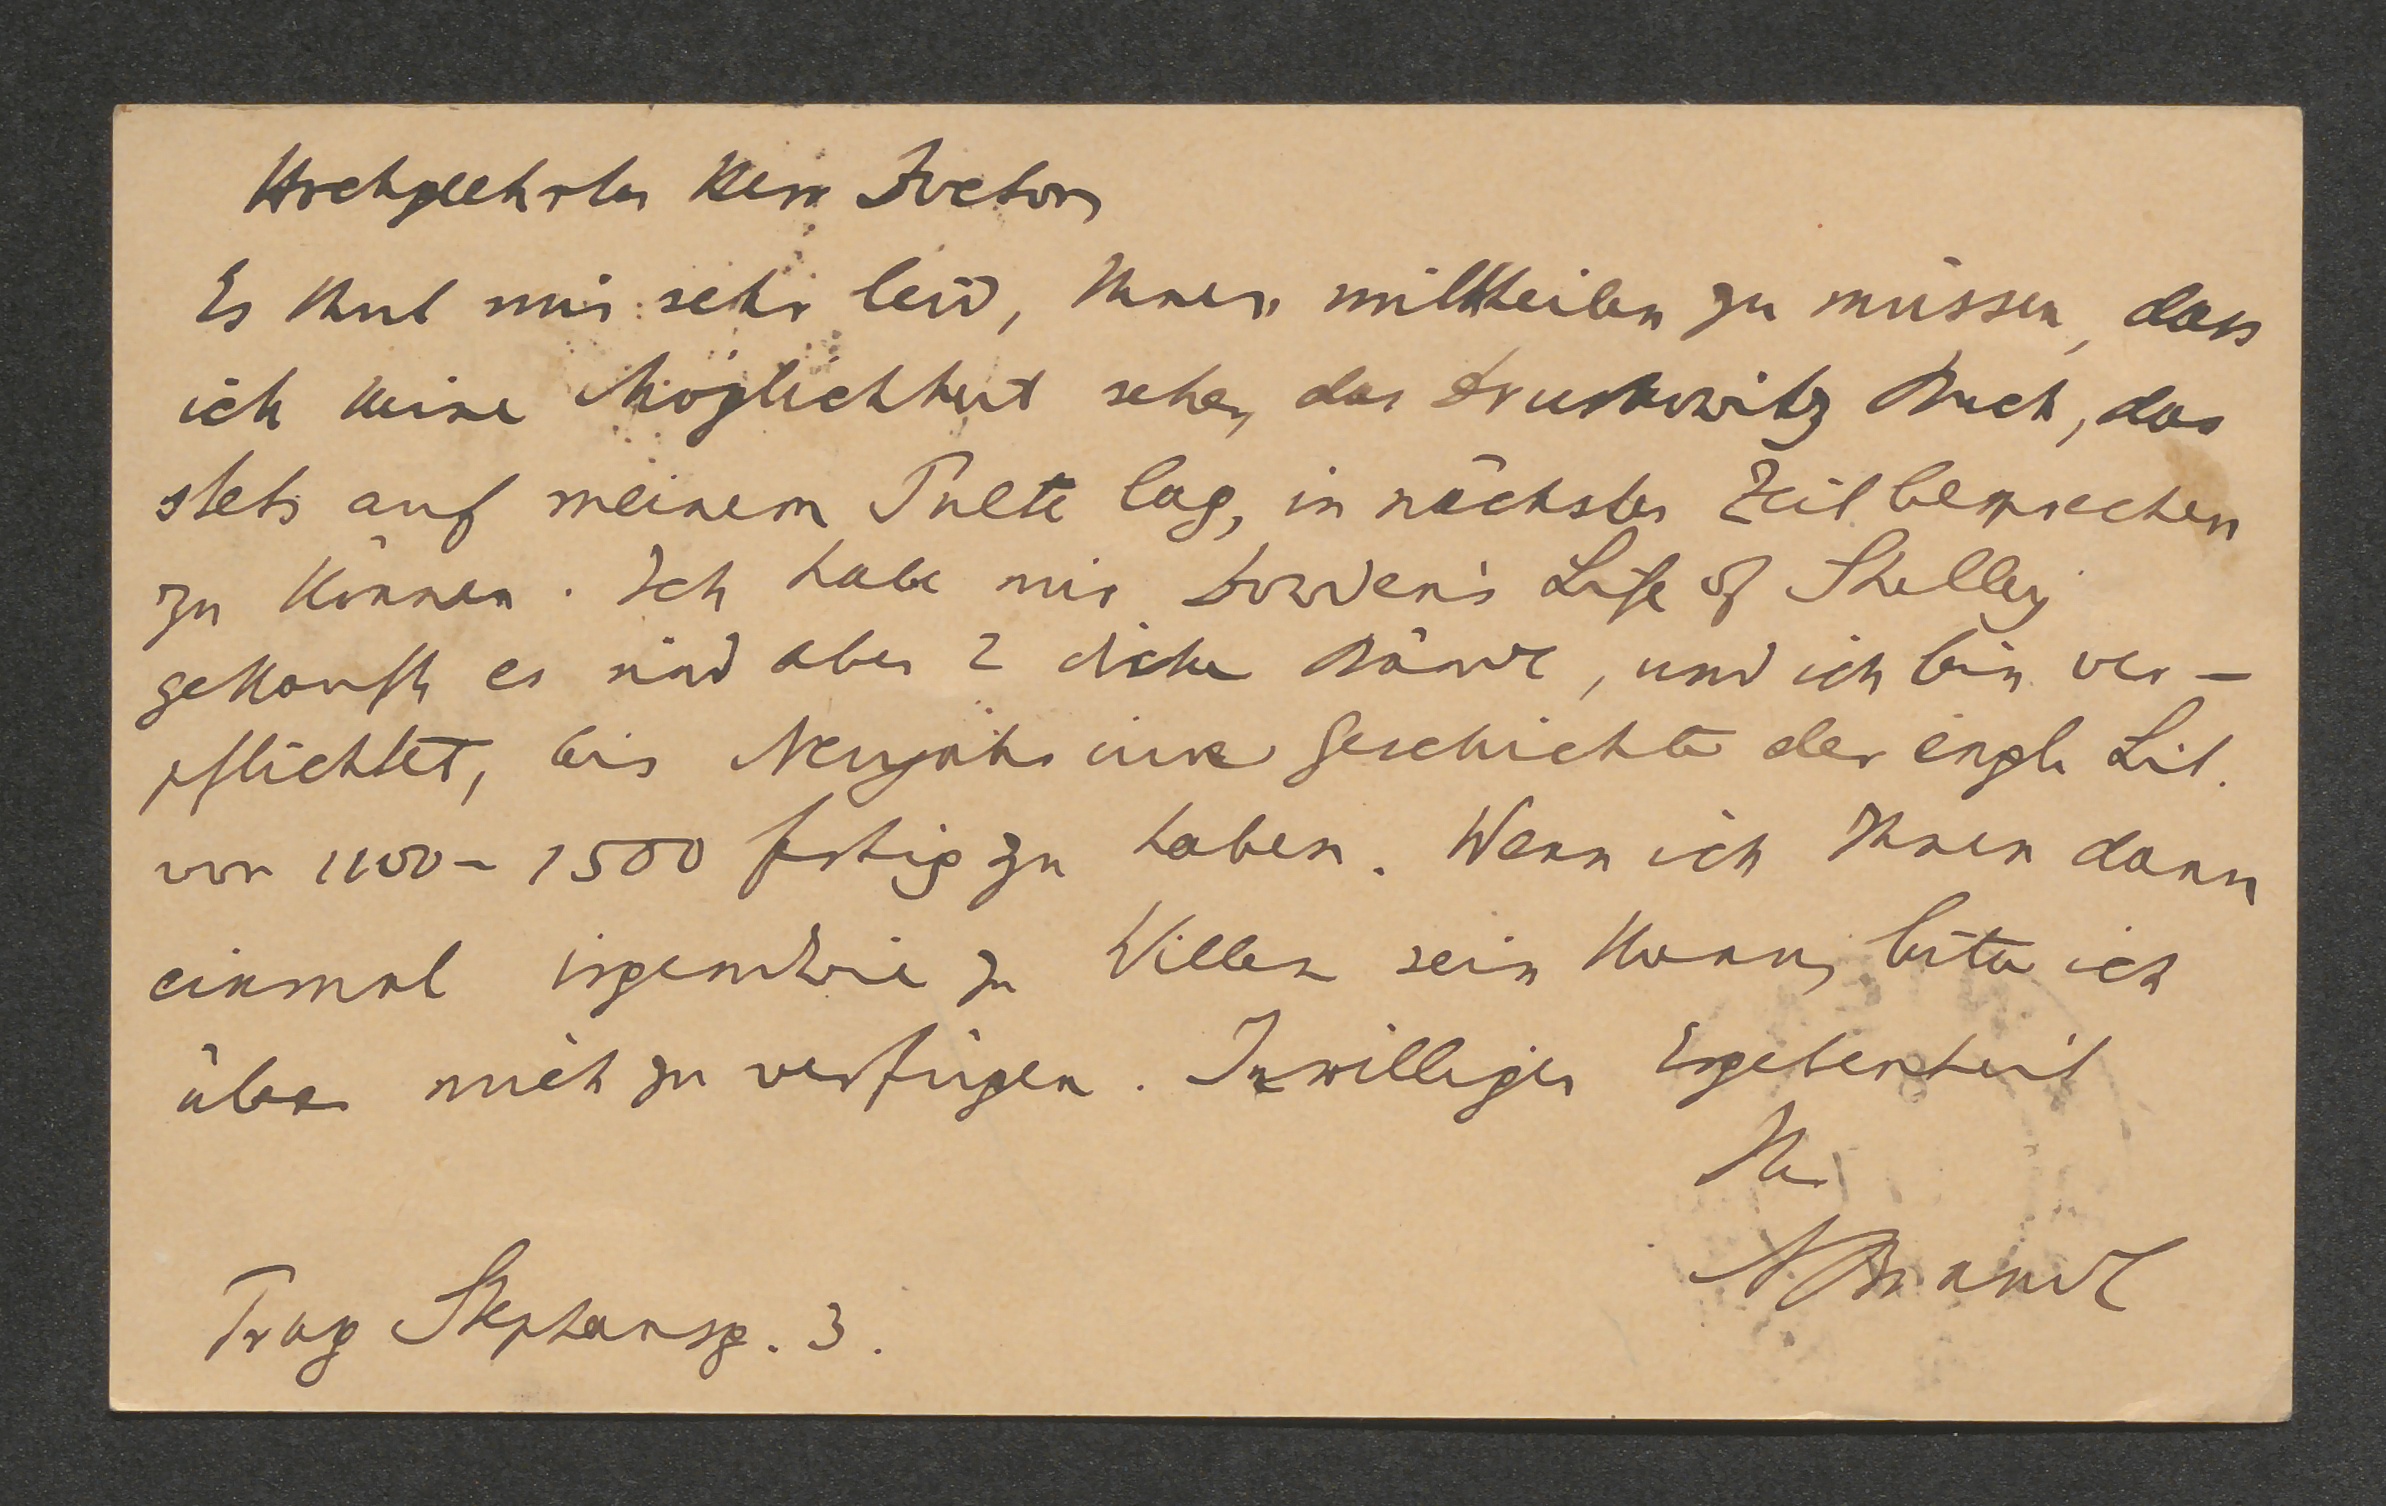 Hochgeehrter Herr Doctor,
Es thut mir sehr leid, Ihnen mittheilen zu müssen, dass
ich keine Möglichkeit sehe, das Druskowitz Buch, das
stets auf meinem Pulte lag, in nächster Zeit besprechen
zu können. Ich habe mir Dowden's Life of Shelley
gekauft, es sind aber 2 dicke Bände, und ich bin ver-
pflichtet, bis Neujahr eine Geschichte der engl. Lit.
von 1100-1500 fertig zu haben. Wenn ich Ihnen dann
einmal irgendwie zu Willen sein kann, bitte ich
über mich zu verfügen. In williger Ergebenheit
Ihr
ABrandl
Prag Stephansg. 3.